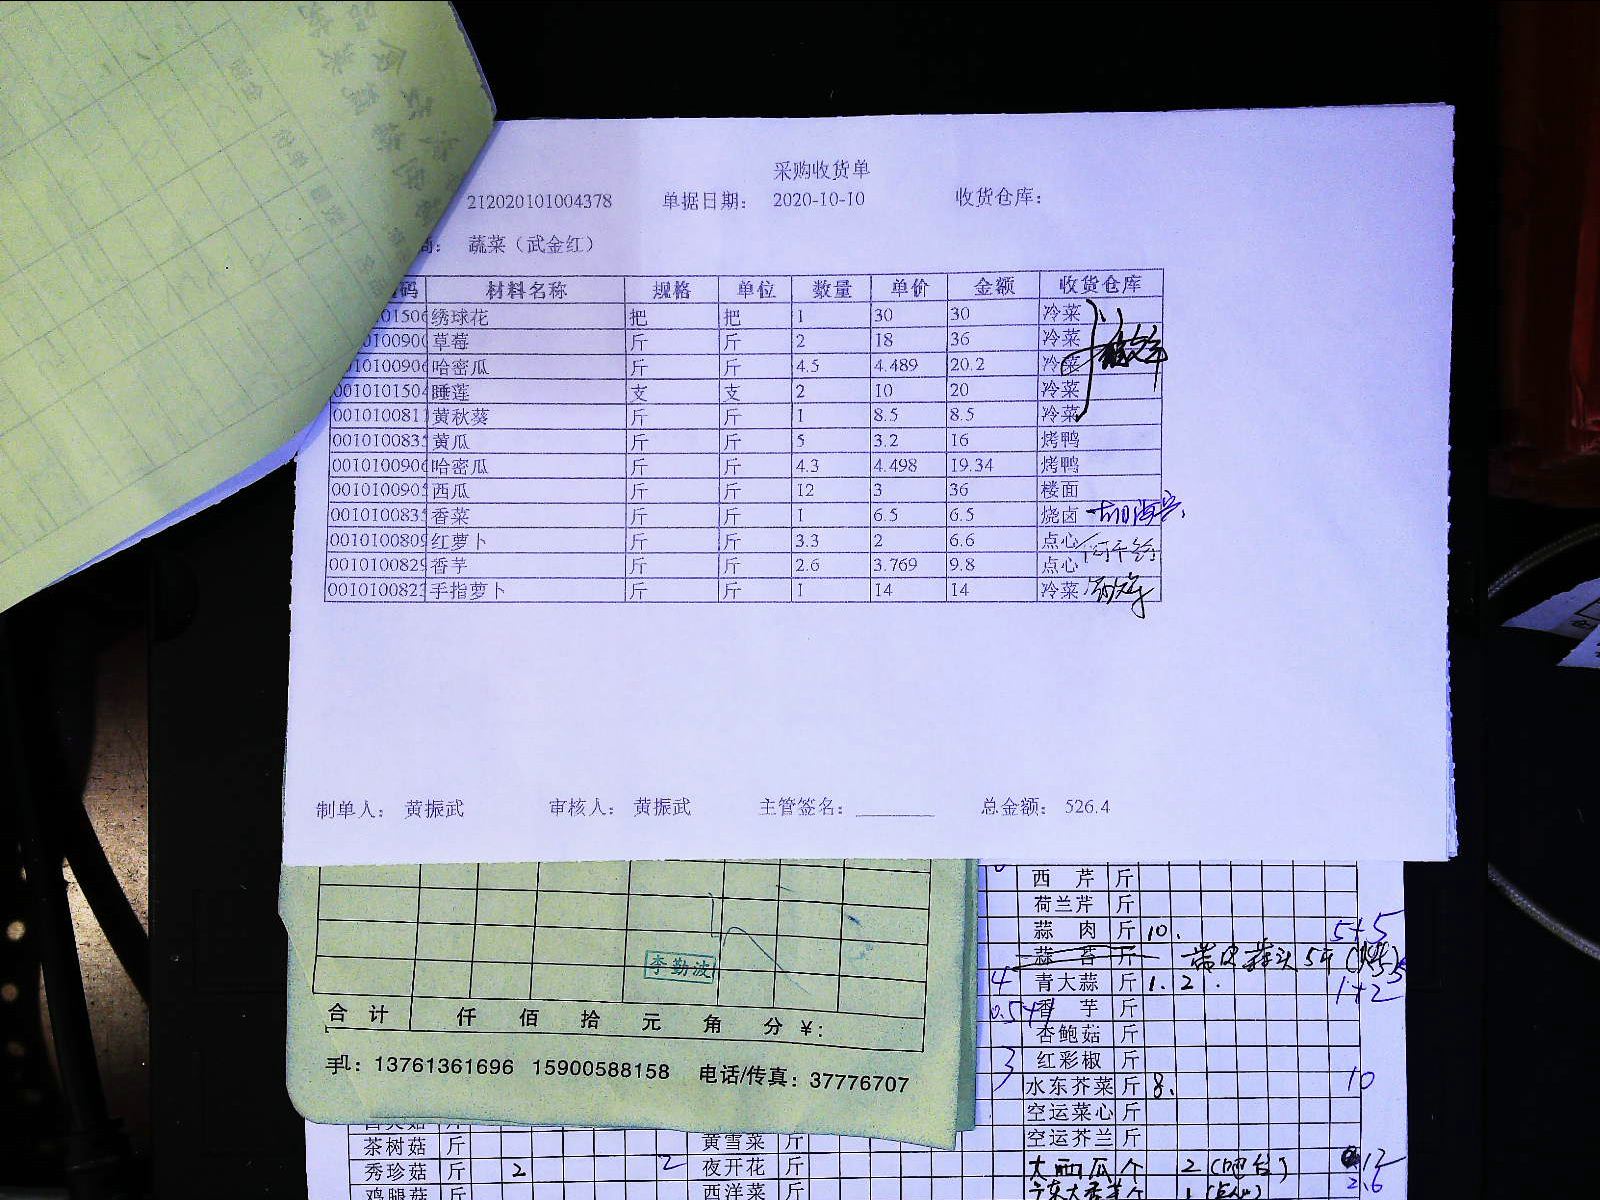 采购收货单
212020101004378 单据日期: 2020-10-10 收货仓库:
商: 蔬菜（武金红）
码 材料名称 规格 单位 数量 单价 金额 收货仓库
01506 绣球花 把 把 1 30 30 冷菜
0100900 草莓 斤 斤 2 18 36 冷菜
010100906 哈密瓜 斤 斤 4.5 4.489 20.2 冷菜
0010101504 睡莲 支 支 2 10 20 冷菜
001010081 黄秋葵 斤 斤 1 8.5 8.5 冷菜
001010083 黄瓜 斤 斤 5 3.2 16 烤鸭
0010100906 哈密瓜 斤 斤 4.3 4.498 19.34 烤鸭
001010090 西瓜 斤 斤 12 3 36 楼面
001010083 香菜 斤 斤 1 6.5 6.5 烧卤
0010100809 红萝卜 斤 斤 3.3 2 6.6 点心
0010100829 香芋 斤 斤 2.6 3.769 9.8 点心
001010082 手指萝卜 斤 斤 1 14 14 冷菜
制单人: 黄振武 审核人: 黄振武 主管签名: 总金额: 526.4
西芹 斤
荷兰芹 斤
蒜肉 斤 10. 5+5
李勤波
4 青大蒜 斤 1.2. 1+2
合计 仟 佰 拾 元 角 分 ¥:
香芋 斤
杏鲍菇 斤
3 红彩椒 斤
手机: 13761361696 15900588158 电话/传真: 37776707
水东芥菜 斤 8. 10
空运菜心 斤
空运芥兰 斤
茶树菇 斤 黄雪菜 斤
秀珍菇 斤 2 2 夜开花 斤 大西瓜 个 2
鸡腿菇 斤 西洋菜 斤 2.6